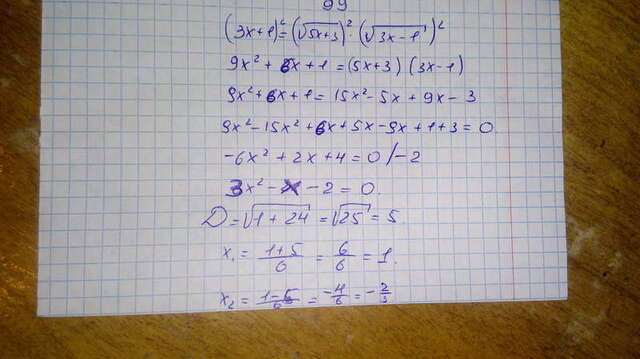 99
(3x+1)² = (√5x+3)² · (√3x-1)²
9x² + 6x + 1 = (5x+3) (3x-1)
9x² + 6x + 1 = 15x² - 5x + 9x - 3
9x² - 15x² + 6x + 5x - 9x + 1 + 3 = 0
-6x² + 2x + 4 = 0 /-2
3x² - x - 2 = 0.
D = √1 + 24 = √25 = 5
x₁ = 1+5/6 = 6/6 = 1.
x₂ = 1-5/6 = -4/6 = -2/3